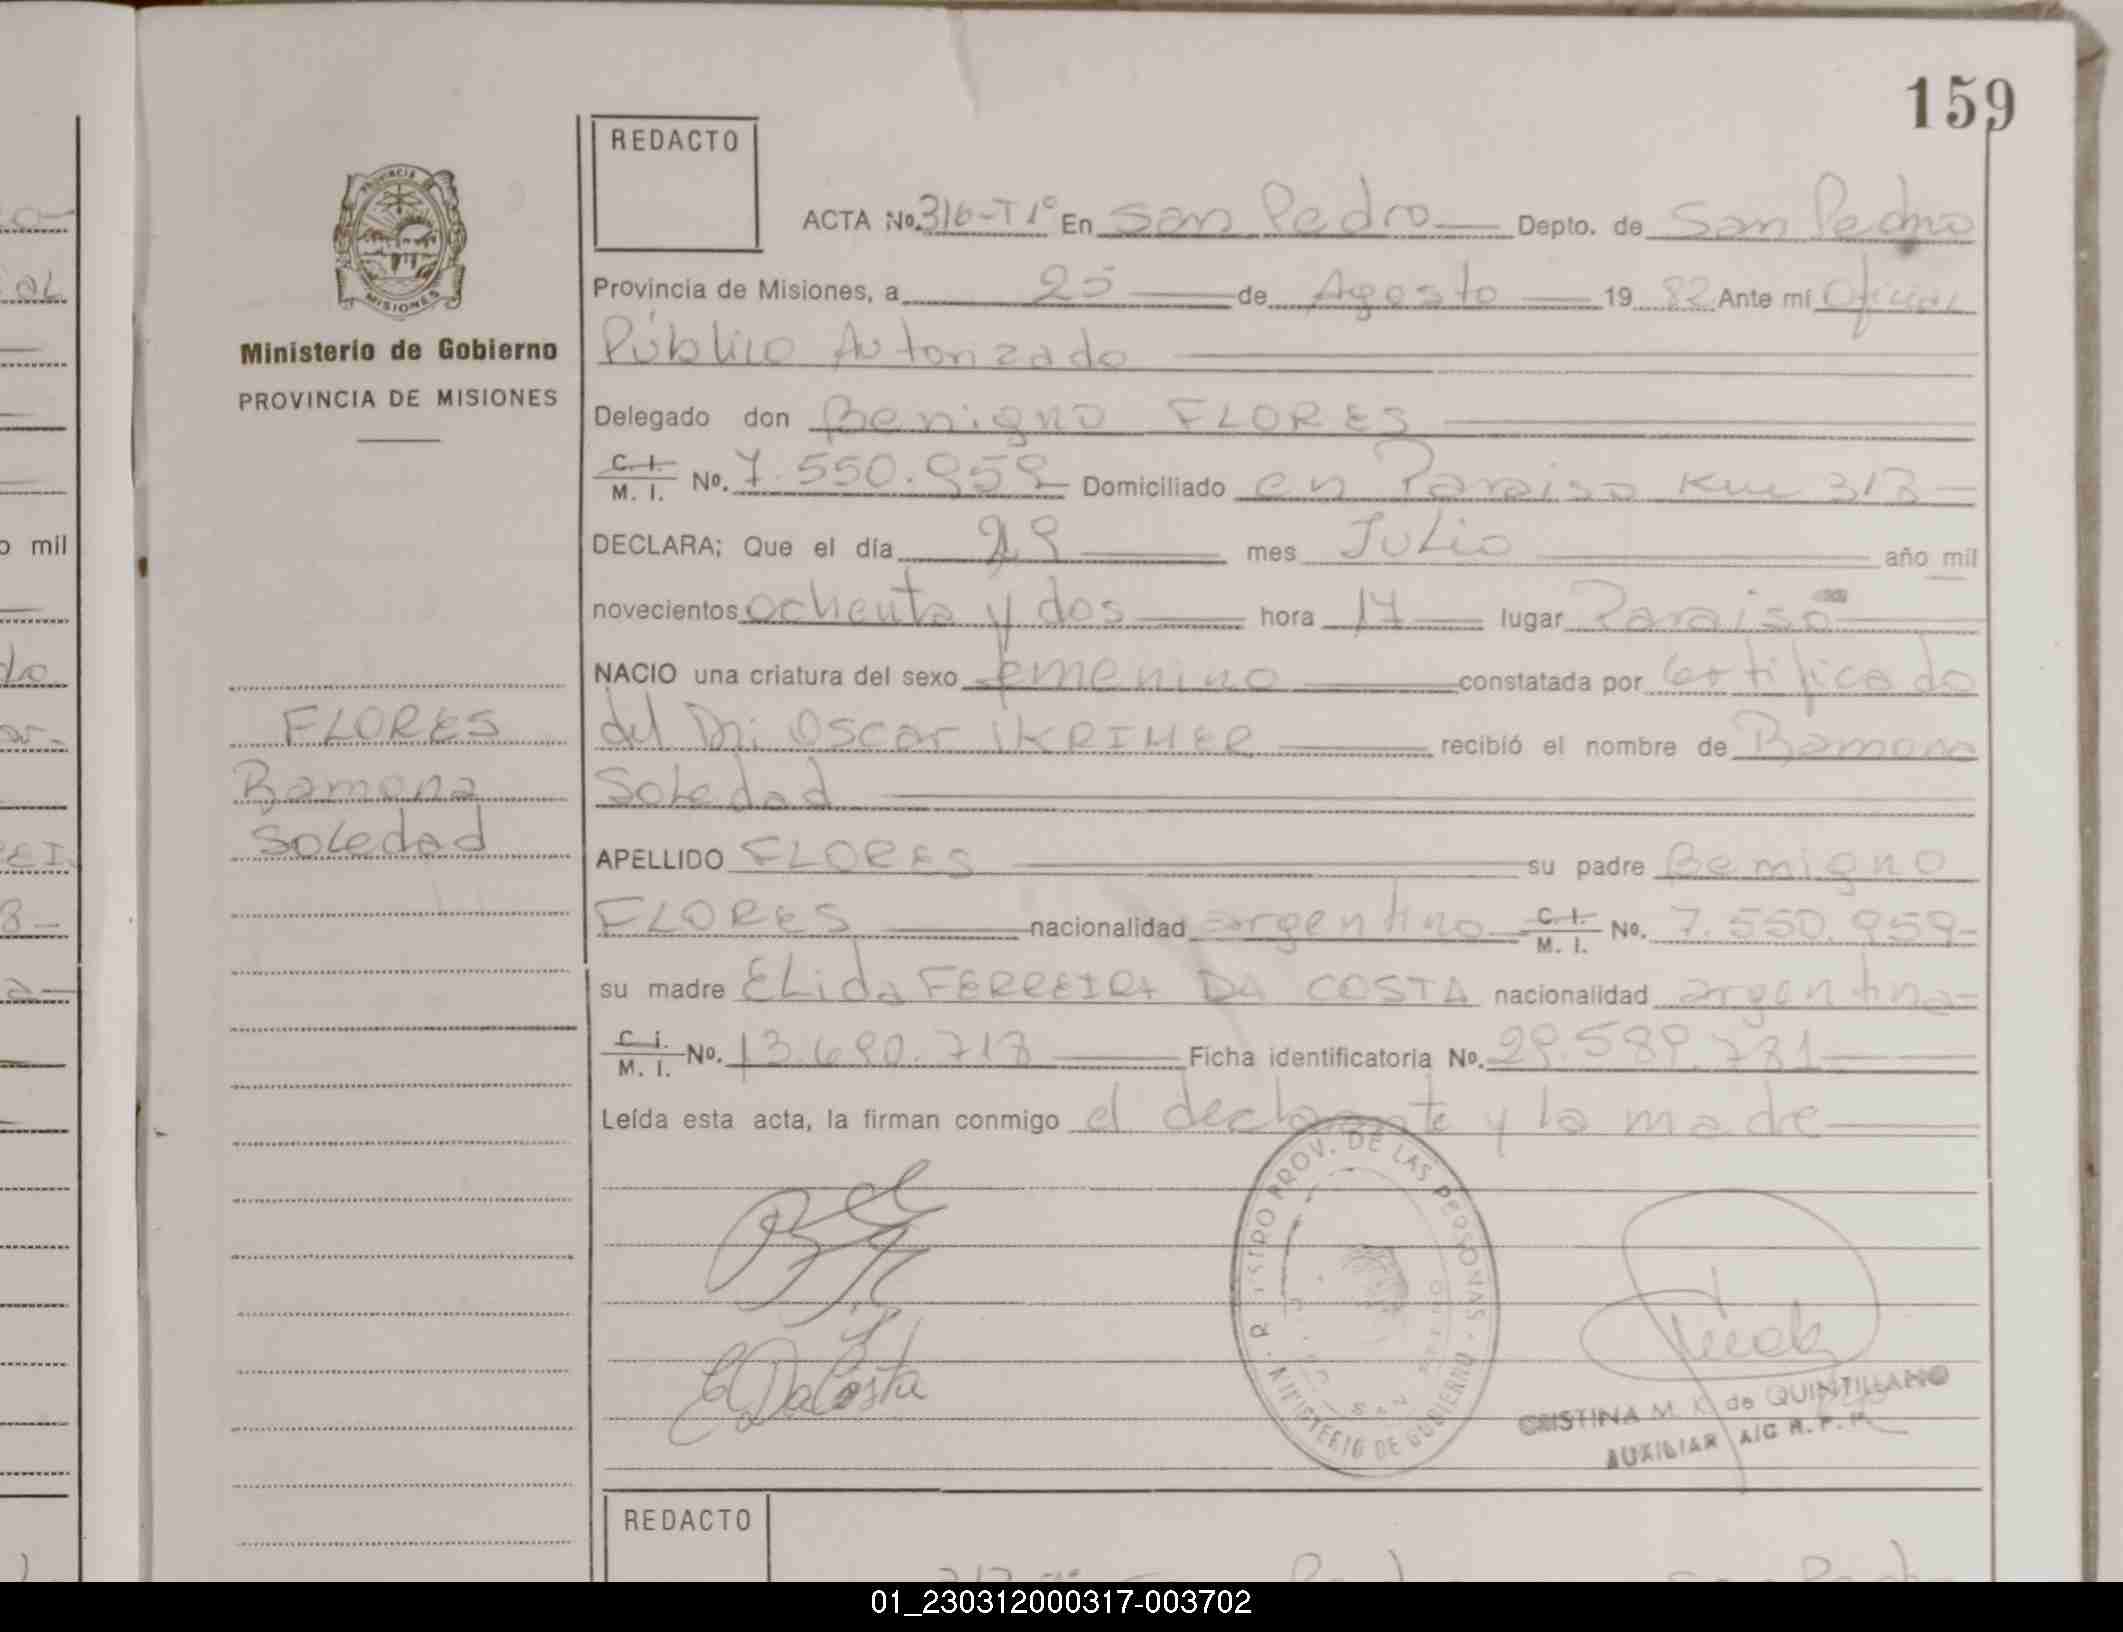 159
REDACTO
ACTA No. 316-T1° En San Pedro Depto. de San Pedro
Provincia de Misiones, a 25 de Agosto 19 82 Ante mí Oficial
Público Autorizado
Delegado don Benigno FLORES
C. I. M. I. No. 7.550.959 Domiciliado en Paraiso Km 313
DECLARA; Que el día 29 mes Julio año mil
novecientos ochenta y dos hora 17 lugar Paraiso
NACIO una criatura del sexo femenino constatada por Certificado
del Dr. Oscar IKRIMER recibió el nombre de Ramona
Soledad
APELLIDO FLORES su padre Benigno
FLORES nacionalidad argentino C. I. M. I. No. 7.550.959-
su madre ELida FERREIRA DA COSTA nacionalidad argentina
C. I. M. I. No. 13.690.713 Ficha identificatoria No. 29.589.781
Leída esta acta, la firman conmigo el declarante y la madre
PROVINCIA
MISIONES
Ministerio de Gobierno
PROVINCIA DE MISIONES
FLORES
Ramona
Soledad
E DaCosta
REGISTRO PROV. DE LAS PERSONAS
MINISTERIO DE GOBIERNO
CRISTINA M. K. de QUINTILLANO
AUXILIAR A/C R. P. P.
REDACTO
o mil
01_230312000317-003702